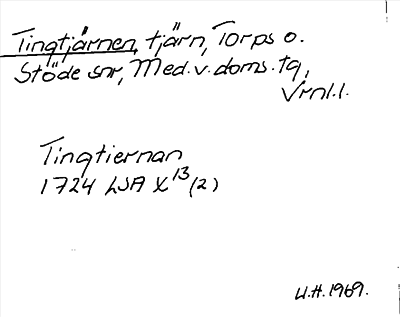 Tingtjärnen, tjärn, Torps o.
Stöde snr, Med. v. doms. tg,
Vrnl.l.
Tingtiernan
1724 LSA X13 (2)
U.H. 1969.